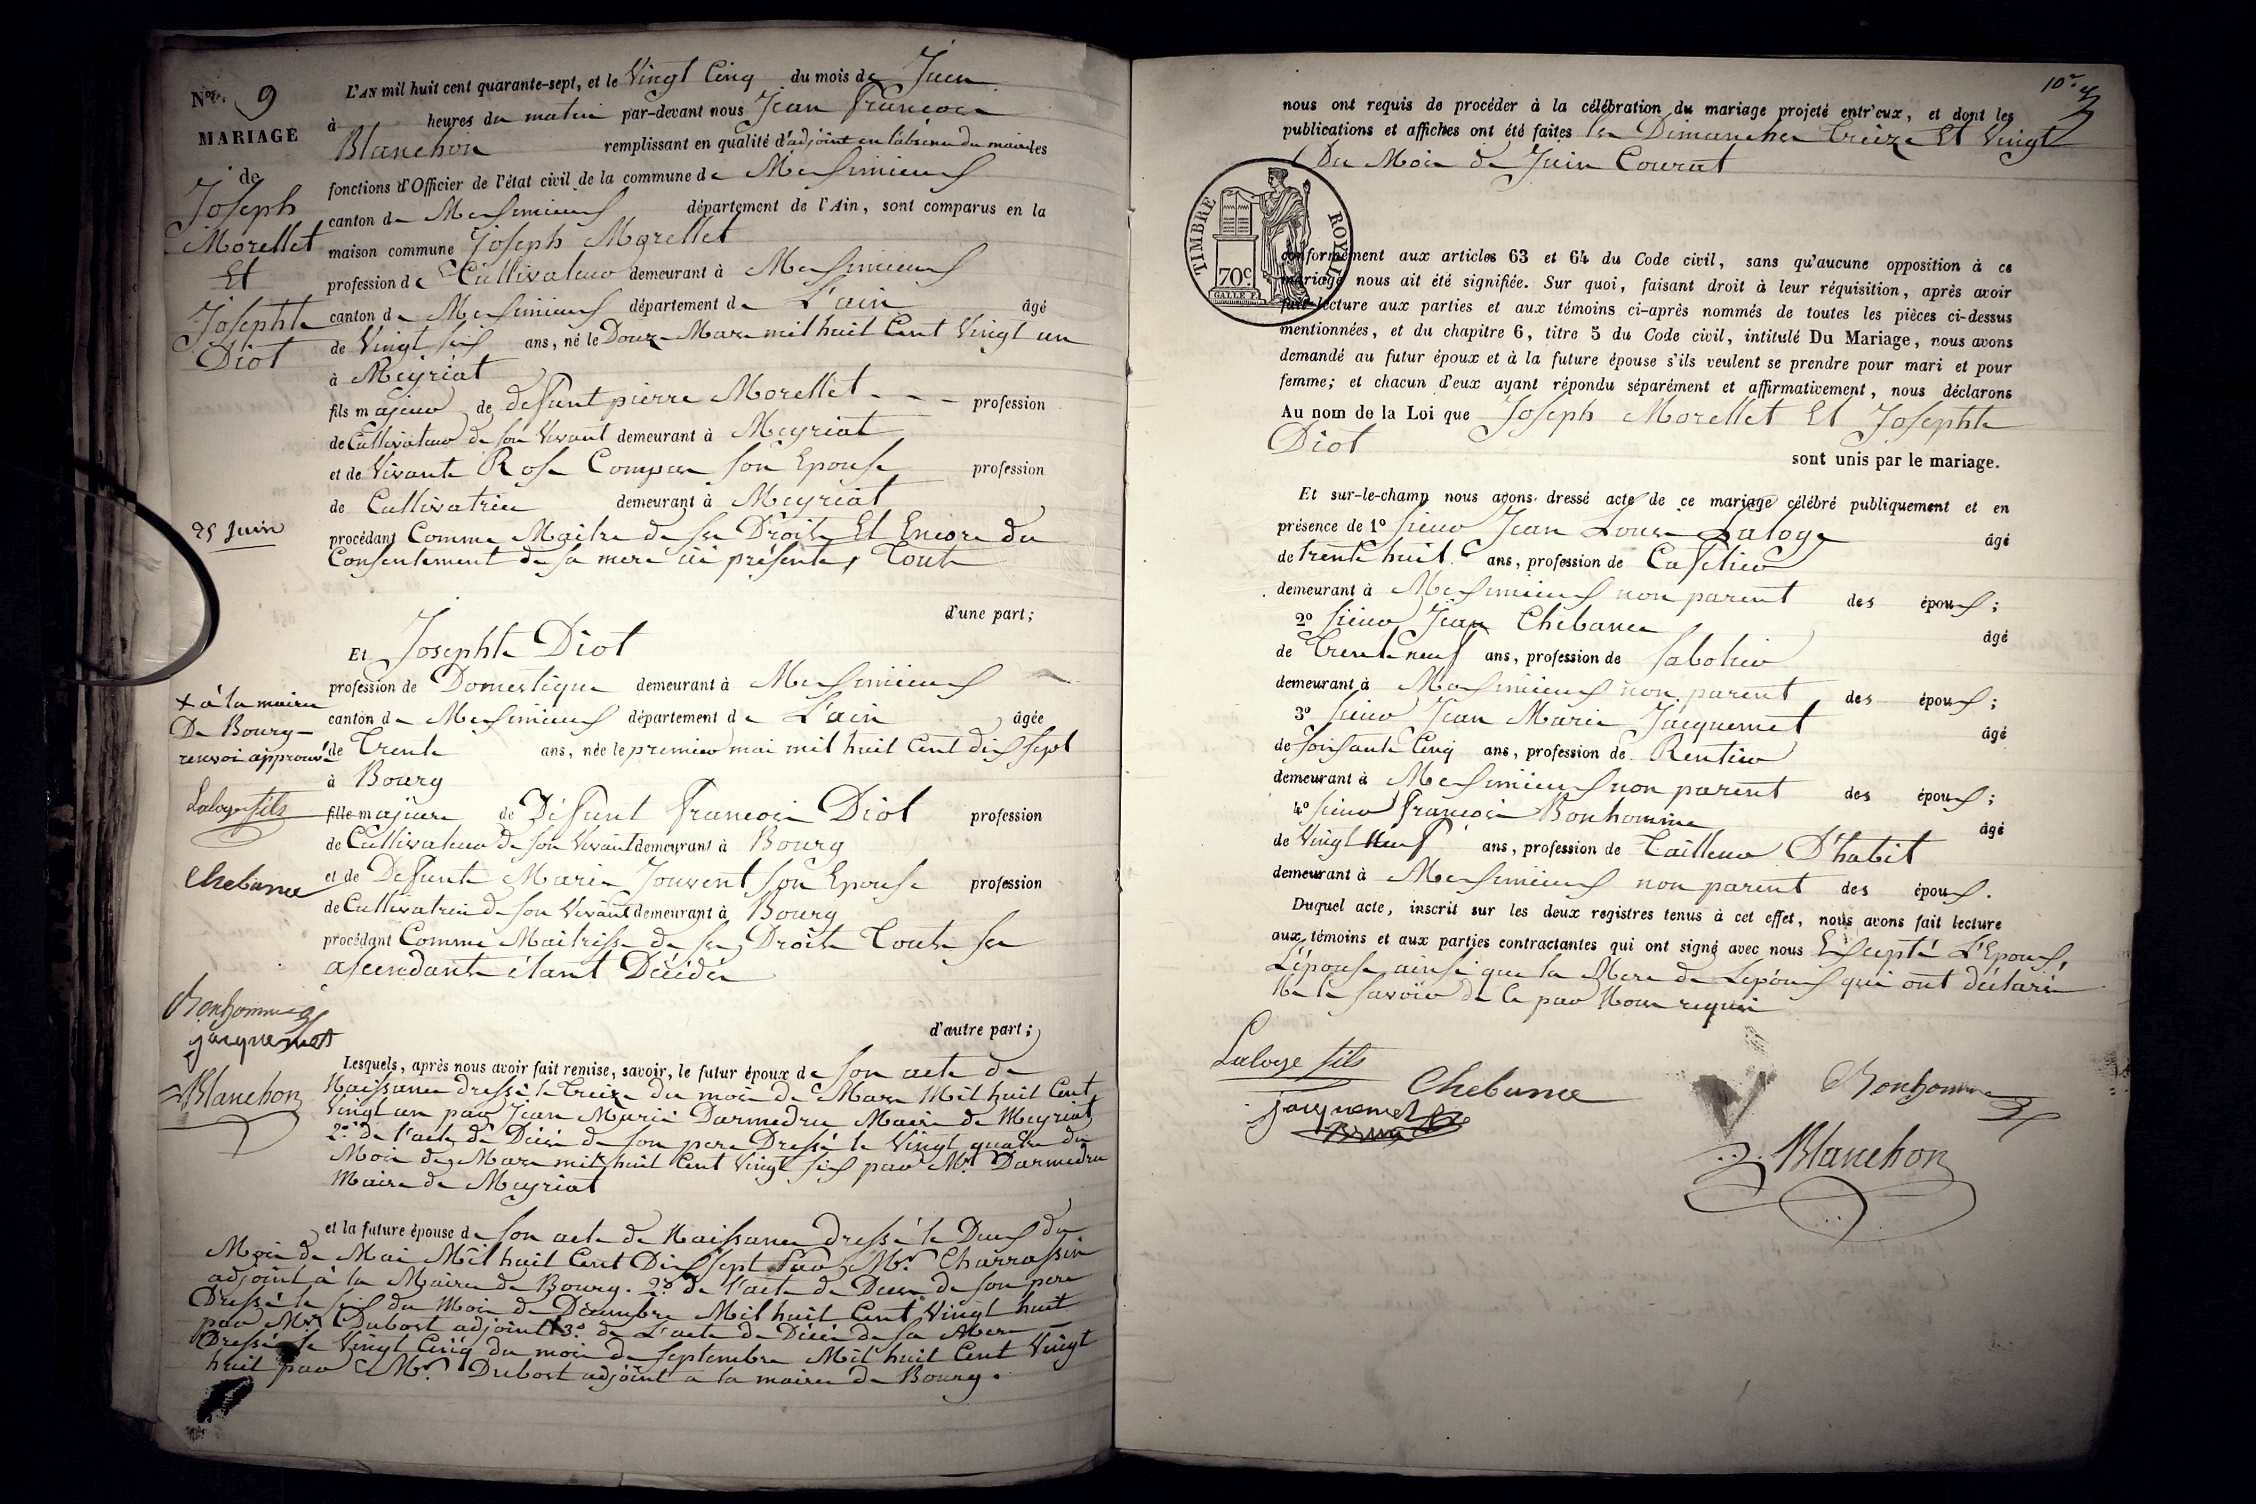 N° 9
MARIAGE
de
Joseph
Morellet
Et
Josephte
Diot
25 Juin
+ à la mairie
De Bourg
renvoi approuvé
Laloge fils
Chebance
Bonhomme
jacquemet
Blanchon
L'AN mil huit cent quarante-sept, et le Vingt Cinq du mois de Juin
à heures du matin par-devant nous Jean François
Blanchon remplissant en qualité d'adjoint en l'absence du maire les
fonctions d'Officier de l'état civil de la commune de Meximieux
canton de Meximieux département de l'Ain, sont comparus en la
maison commune Joseph Morellet
profession de Cultivateur demeurant à Meximieux
canton de Meximieux département de L'ain âgé
de Vingt six ans, né le Douze Mars mil huit Cent Vingt un
à Meyriat
fils majeur de defunt pierre Morellet - - - profession
de Cultivateur de son Vivant demeurant à Meyriat
et de Vivante Rose Compas son Epouse profession
de Cultivatrice demeurant à Meyriat
procédant Comme Maitre de ses Droits Et Encore du
Consentement de sa mere ici présente, Tout
d'une part;
Et Josephte Diot
profession de Domestique demeurant à Meximieux
canton de Meximieux département de L'ain âgée
de Trente ans, née le premier mai mil huit Cent dix sept
à Bourg
fille majeure de Défunt François Diot profession
de Cultivateur de son Vivant demeurant à Bourg
et de Defunte Marie Jouvent son Epouse profession
de Cultivatrice de son Vivant demeurant à Bourg
procédant Comme Maitrisse de ses Droits Touts ses
ascendants étant Décédés
d'autre part;
Lesquels, après nous avoir fait remise, savoir, le futur époux de son acte de
Naissance dressé le Treize du mois de Mars Mil huit Cent
Vingt un par Jean Marie Darmedru Maire de Meyriat
2° de l'acte de Décés de son pere Dressé le Vingt quatre du
Mois de Mars mil huit Cent Vingt six par Mr Darmedru
Maire de Meyriat
et la future épouse de son acte de Naissance dressé le Deux du
Mois de Mai Mil huit Cent Dix sept Par Mr. Charrassin
adjoint à la Mairie de Bourg. 2° de l'acte de Deces de son pere
Dressé le six du Mois de Decembre Mil huit Cent Vingt huit
par Mr Dubost adjoint + 3° de L'acte de Décés de sa Mere
Dressé le Vingt Cinq du mois de Septembre Mil huit Cent Vingt
huit par Mr. Dubost adjoint a la mairie de Bourg.
10
nous ont requis de procéder à la célébration du mariage projeté entr'eux, et dont les
publications et affiches ont été faites les Dimanches Treize Et Vingt
Du Mois de Juin Courant
TIMBRE ROYAL
70c.
conformément aux articles 63 et 64 du Code civil, sans qu'aucune opposition à ce
mariage nous ait été signifiée. Sur quoi, faisant droit à leur réquisition, après avoir
fait lecture aux parties et aux témoins ci-après nommés de toutes les pièces ci-dessus
mentionnées, et du chapitre 6, titre 5 du Code civil, intitulé Du Mariage, nous avons
demandé au futur époux et à la future épouse s'ils veulent se prendre pour mari et pour
femme; et chacun d'eux ayant répondu séparément et affirmativement, nous déclarons
Au nom de la Loi que Joseph Morellet Et Josephte
Diot
sont unis par le mariage.
Et sur-le-champ nous avons dressé acte de ce mariage célébré publiquement et en
présence de 1° sieur Jean Louis Laloge âgé
de trente huit ans, profession de Cafetier
demeurant à Meximieux non parent des époux;
2° sieur Jean Chebance âgé
de Trente neuf ans, profession de sabotier
demeurant à Meximieux non parent des époux;
3° sieur Jean Marie Jacquemet âgé
de soixante Cinq ans, profession de Rentier
demeurant à Meximieux non parent des époux;
4° sieur François Bonhomme âgé
de Vingt Neuf ans, profession de Tailleur D'habit
demeurant à Meximieux non parent des époux.
Duquel acte, inscrit sur les deux registres tenus à cet effet, nous avons fait lecture
aux témoins et aux parties contractantes qui ont signé avec nous Excepté L'Epoux,
L'épouse ainsi que la Mere de Lepoux qui ont déclaré
Ne le savoir de ce par Nous requis
Laloge fils
Chebance
Bonhomme
jacquemet
Blanchon